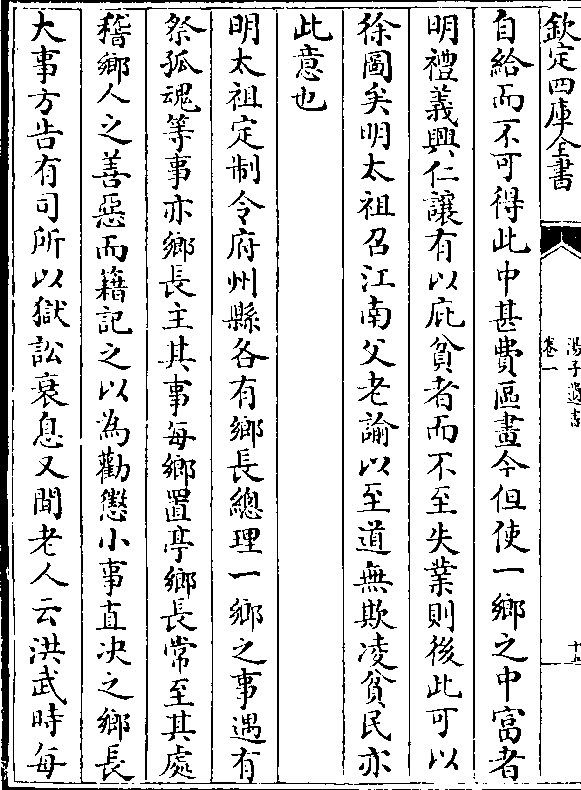 欽定四庫全書
湯子遺書
卷一
自給而不可得此中甚費區畫今但使一鄉之中富者
明禮義興仁讓有以庇貧者而不至失業則後此可以
徐圖矣明太祖召江南父老諭以至道無欺凌貧民亦
此意也
明太祖定制令府州縣各有鄉長總理一鄉之事遇有
祭孤魂等事亦鄉長主其事每鄉置亭鄉長常至其處
稽鄉人之善惡而籍記之以為勸懲小事直决之鄉長
大事方告有司所以獄訟衰息又聞老人云洪武時每